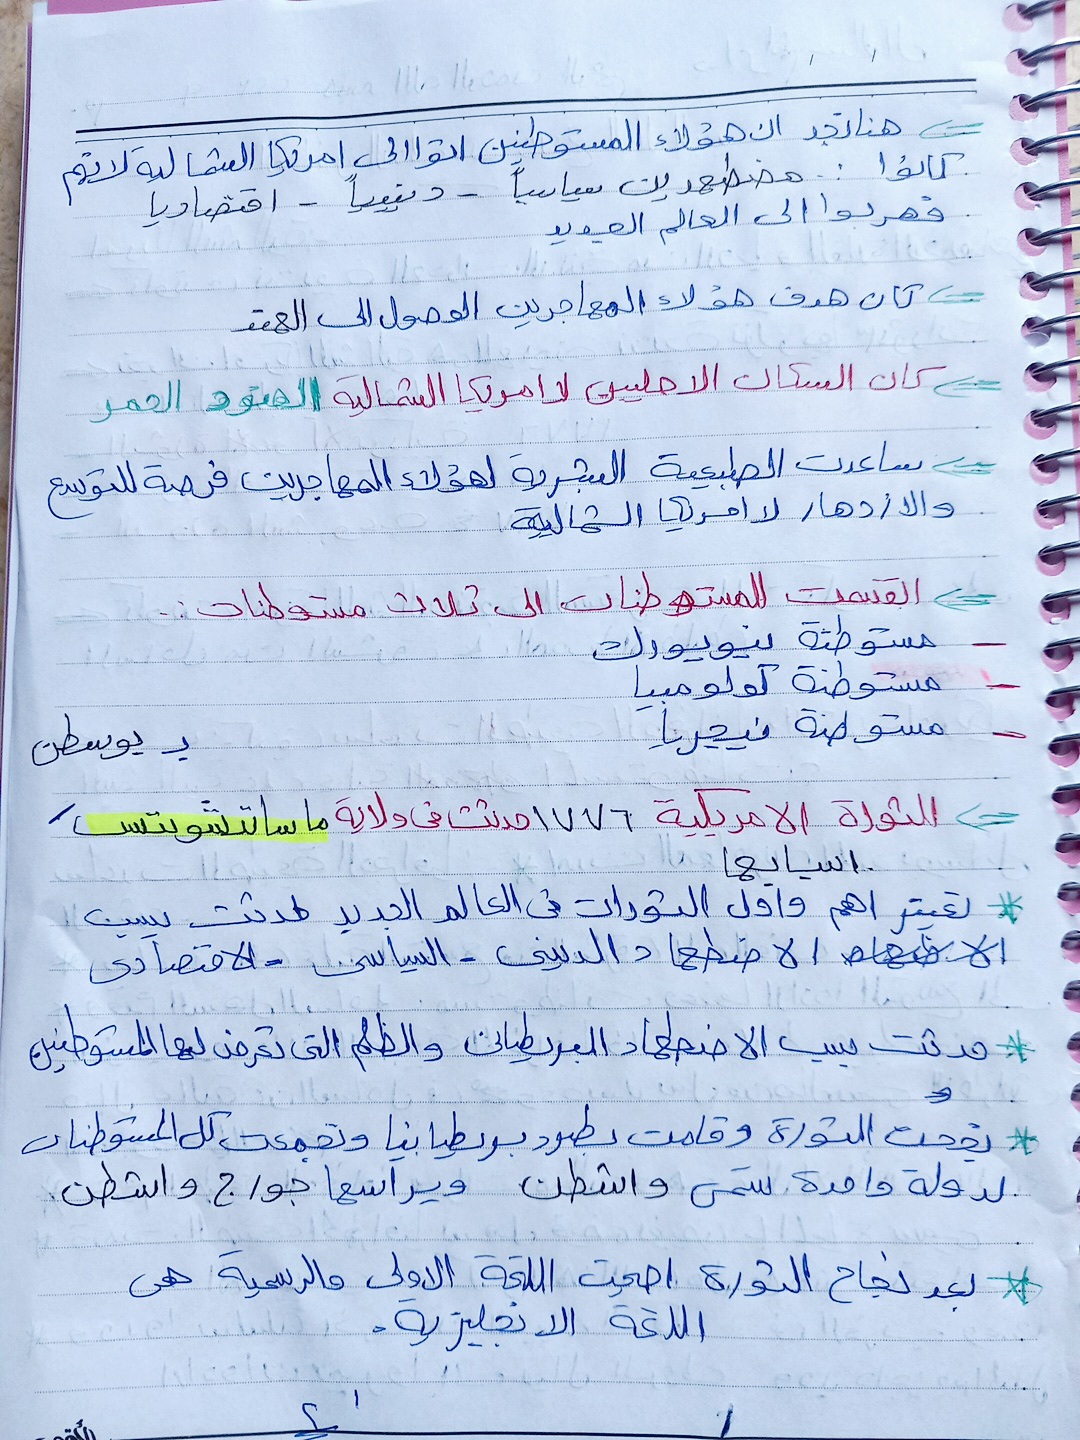 هنا نجد ان هؤلاء المستوطنين اتوا الى امريكا الشمالية لانهم
كانوا :. مضطهدين سياسياً - دينيياً - اقتصاديا
فهربوا الى العالم الجديد
كان هدف هؤلاء المهاجرين الوصول الى الهند
كان السكان الاصليين لامريكا الشمالية الهنود الحمر
ساعدت الطبيعية البشرية لهؤلاء المهاجرين فرصة للتوسع
والازدهار لامريكا الشمالية
انقسمت المستوطنات الى ثلاث مستوطنات :.
- مستوطنة نيويورك
- مستوطنة كولومبيا
- مستوطنة فيجريا
بوسطن
الثورة الامريكية ١٧٧٦ حدثت فى ولاية ماساتشوتس
اسبابها
* تعتبر اهم واول الثورات فى العالم الجديد حدثت بسبب
الاضطهاد الدينى - السياسى - الاقتصادى
* حدثت بسبب الاضطهاد البريطانى والظلم التى تعرض لها المستوطنين
* نجحت الثورة وقامت بطرد بريطانيا وتجمعت كل المستوطنات
لدولة واحدة سمى واشطن ويراسها جورج واشطن.
* بعد نجاح الثورة اصبحت اللغة الاولى والرسمية هى
اللغة الانجليزية.